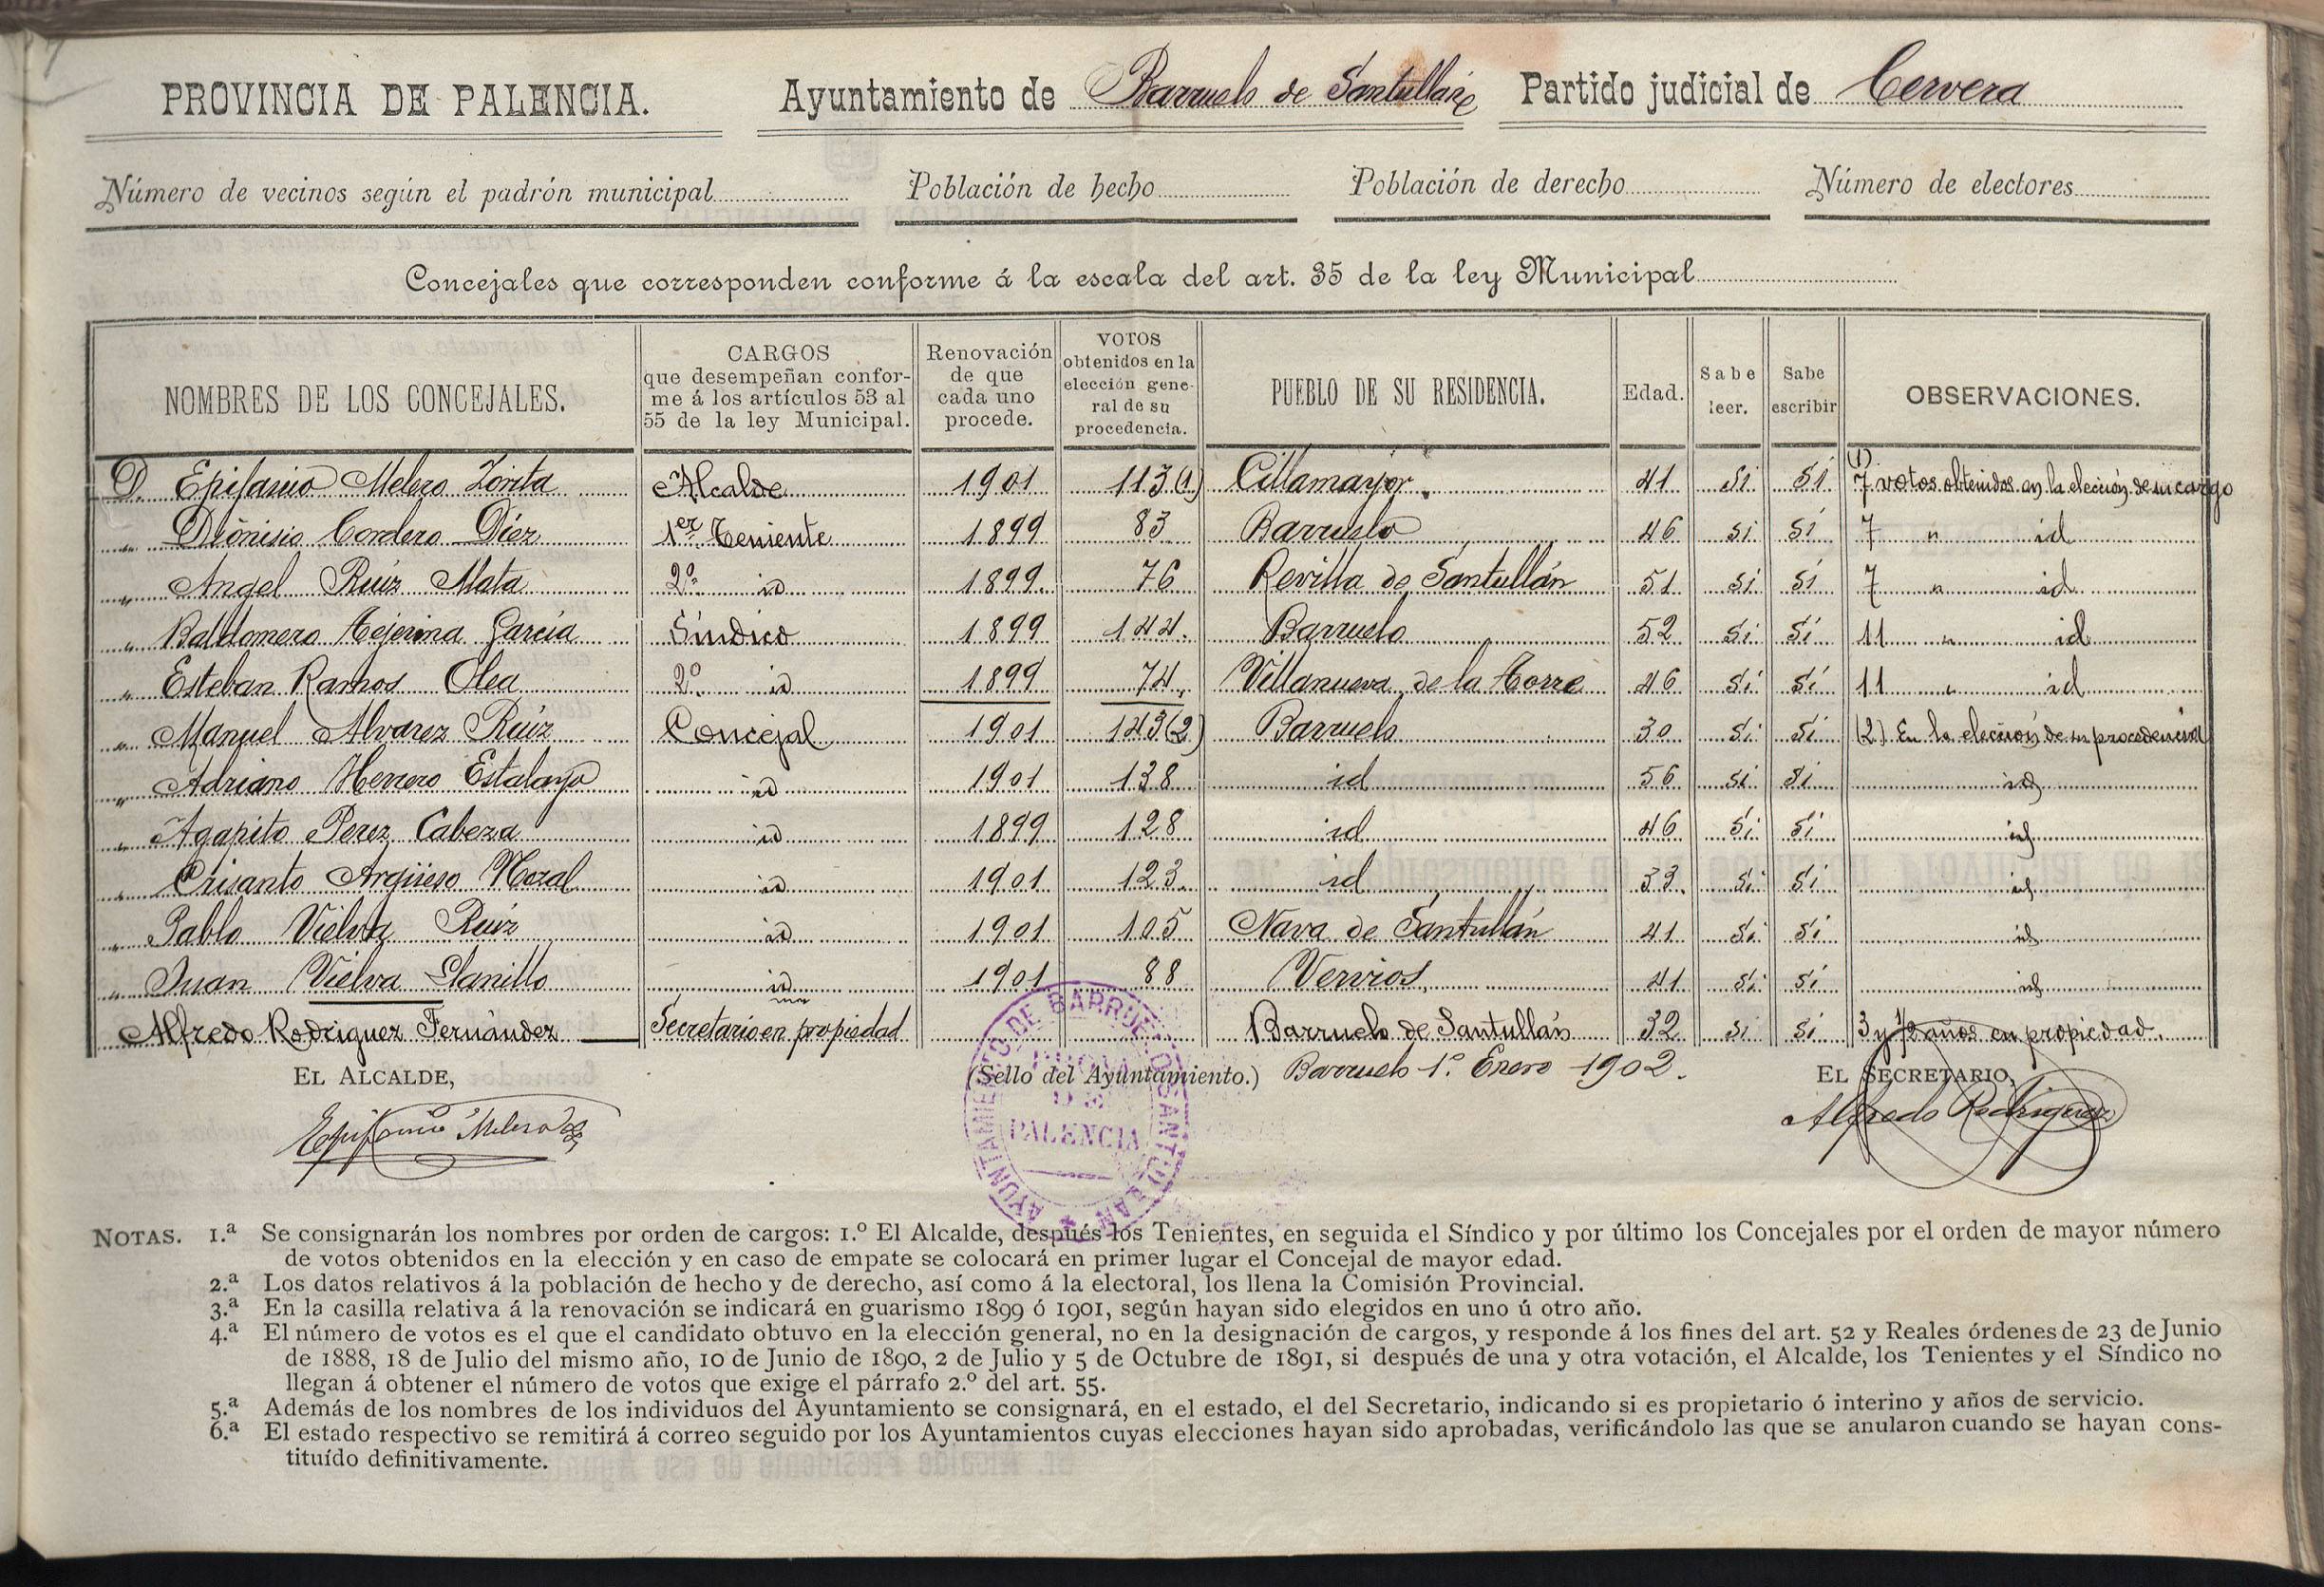 PROVINCIA DE PALENCIA. Ayuntamiento de Barruelo de Santullán Partido judicial de Cervera
Número de vecinos según el padrón municipal Población de hecho Población de derecho Número de electores
Concejales que corresponden conforme á la escala del art. 35 de la ley Municipal
NOMBRES DE LOS CONCEJALES. CARGOS que desempeñan confor-me á los artículos 53 al 55 de la ley Municipal. Renovación de que cada uno procede. VOTOS obtenidos en la elección gene-ral de su procedencia. PUEBLO DE SU RESIDENCIA. Edad. Sabe leer. Sabe escribir OBSERVACIONES.
D. Epifanio Melero Zorita Alcalde 1901 113 (1) Cillamayor. 41 si si (1) 7 votos obtenidos en la elección de su cargo
" Dionisio Cordero Diez 1er Teniente 1899 83 Barruelo 46 si si 7 " id
" Angel Ruiz Mata 2º id 1899. 76 Revilla de Santullán 51 si si 7 " id
" Baldomero Tejerina García Síndico 1899 144. Barruelo 52 si si 11 " id
" Esteban Ramos Olea 2º id 1899 74. Villanueva de la Torre 46 si si 11 " id
" Manuel Alvarez Ruiz Concejal 1901 143 (2) Barruelo 30 si si (2) En la elección de su procedencia
" Adriano Herrero Estalayo id 1901 138 id 56 si si id
" Agapito Perez Cabeza id 1899 128 id 46 si si id
" Crisanto Argüeso Moral id 1901 123. id 33. si si id
" Pablo Vielva Ruiz id 1901 105 Nava de Santullán 41 si si id
" Juan Vielva Llanillo id 1901 88 Vervios. 41 si si id
Alfredo Rodriguez Fernández Secretario en propiedad Barruelo de Santullán 32 si si 3 y 1/2 años en propiedad.
EL ALCALDE, (Sello del Ayuntamiento.) Barruelo 1º Enero 1902. EL SECRETARIO,
Epifanio Melero Alfredo Rodriguez
AYUNTAMIENTO DE BARRUELO DE SANTULLAN
PALENCIA
NOTAS. 1.ª Se consignarán los nombres por orden de cargos: 1.º El Alcalde, después los Tenientes, en seguida el Síndico y por último los Concejales por el orden de mayor número
de votos obtenidos en la elección y en caso de empate se colocará en primer lugar el Concejal de mayor edad.
2.ª Los datos relativos á la población de hecho y de derecho, así como á la electoral, los llena la Comisión Provincial.
3.ª En la casilla relativa á la renovación se indicará en guarismo 1899 ó 1901, según hayan sido elegidos en uno ú otro año.
4.ª El número de votos es el que el candidato obtuvo en la elección general, no en la designación de cargos, y responde á los fines del art. 52 y Reales órdenes de 23 de Junio
de 1888, 18 de Julio del mismo año, 10 de Junio de 1890, 2 de Julio y 5 de Octubre de 1891, si después de una y otra votación, el Alcalde, los Tenientes y el Síndico no
llegan á obtener el número de votos que exige el párrafo 2.º del art. 55.
5.ª Además de los nombres de los individuos del Ayuntamiento se consignará, en el estado, el del Secretario, indicando si es propietario ó interino y años de servicio.
6.ª El estado respectivo se remitirá á correo seguido por los Ayuntamientos cuyas elecciones hayan sido aprobadas, verificándolo las que se anularon cuando se hayan cons-
tituído definitivamente.